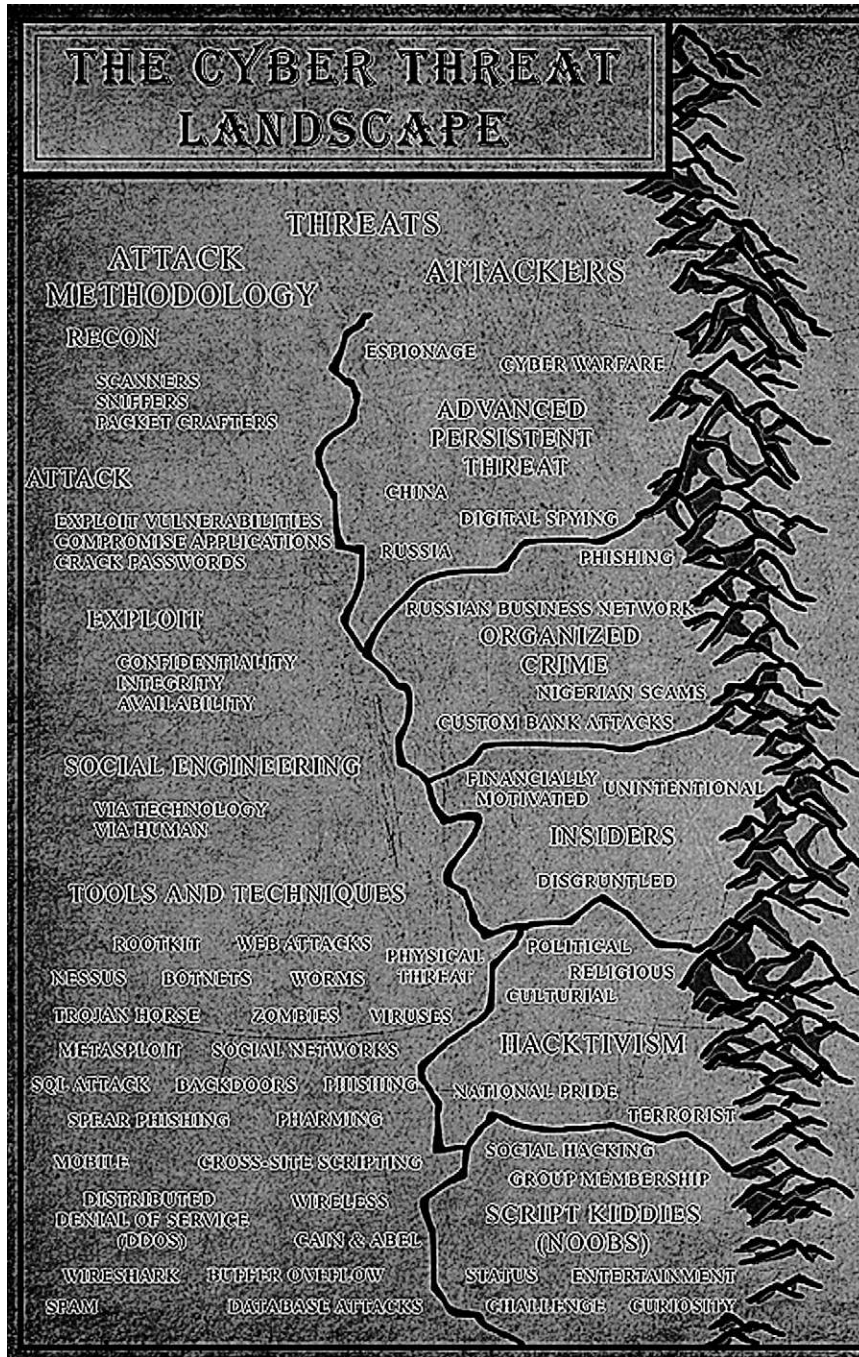 THE CYBER THREAT
LANDSCAPE
THREATS
ATTACK
METHODOLOGY
RECON
SCANNERS
SNIFFERS
PACKET CRAFTERS
ATTACK
EXPLOIT VULNERABILITIES
COMPROMISE APPLICATIONS
CRACK PASSWORDS
EXPLOIT
CONFIDENTIALITY
INTEGRITY
AVAILABILITY
SOCIAL ENGINEERING
VIA TECHNOLOGY
VIA HUMAN
TOOLS AND TECHNIQUES
ROOTKIT WEB ATTACKS
PHYSICAL
THREAT
NESSUS BOTNETS WORMS
TROJAN HORSE ZOMBIES VIRUSES
METASPLOIT SOCIAL NETWORKS
SQL ATTACK BACKDOORS PHISHING
SPEAR PHISHING PHARMING
MOBILE CROSS-SITE SCRIPTING
DISTRIBUTED
DENIAL OF SERVICE
(DDOS)
WIRELESS
CAIN & ABEL
WIRESHARK BUFFER OVEFLOW
SPAM DATABASE ATTACKS
ATTACKERS
ESPIONAGE
CYBER WARFARE
ADVANCED
PERSISTENT
THREAT
CHINA
DIGITAL SPYING
RUSSIA
PHISHING
RUSSIAN BUSINESS NETWORK
ORGANIZED
CRIME
NIGERIAN SCAMS
CUSTOM BANK ATTACKS
FINANCIALLY
MOTIVATED
UNINTENTIONAL
INSIDERS
DISGRUNTLED
POLITICAL
RELIGIOUS
CULTURIAL
HACKTIVISM
NATIONAL PRIDE
TERRORIST
SOCIAL HACKING
GROUP MEMBERSHIP
SCRIPT KIDDIES
(NOOBS)
STATUS ENTERTAINMENT
CHALLENGE CURIOSITY